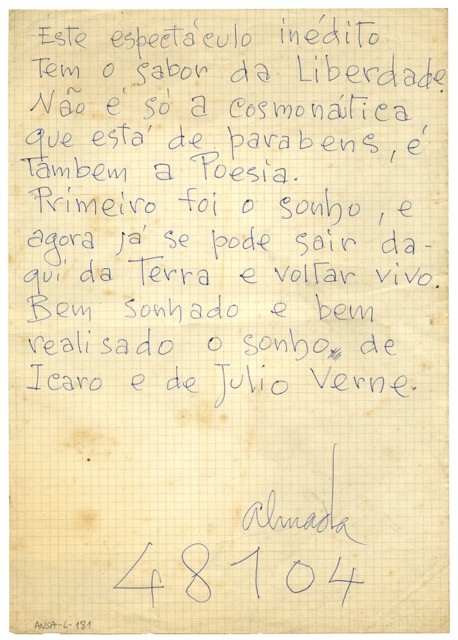 Este espectáculo inédito
Tem o sabor da Liberdade
Não é só a cosmonática
que está de parabens, é
Tambem a Poesia.
Primeiro foi o sonho, e
agora já se pode sair da-
qui da Terra e voltar vivo.
Bem sonhado e bem
realisado o sonho de
Icaro e de Julio Verne.
almada
48104
ANSA-L-181